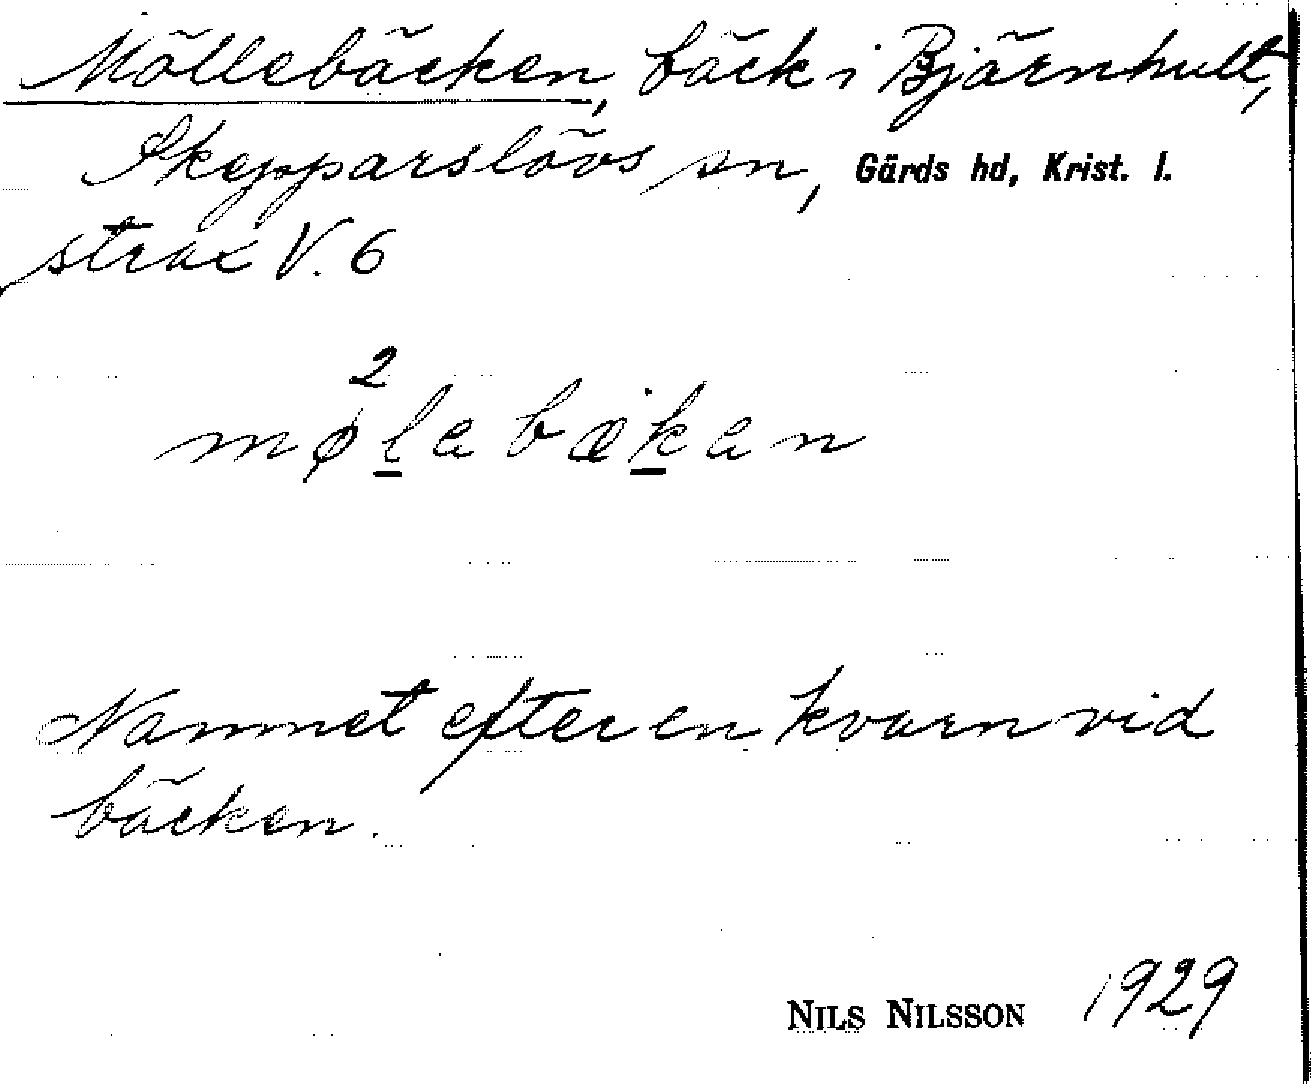 Möllebäcken, bäck i Bjärnhult,
Skepparslövs sn, Gärds hd, Krist. l.
strax V. 6
2
møl̲ebæk̲en
Namnet efter en kvarn vid
bäcken.
NILS NILSSON 1929